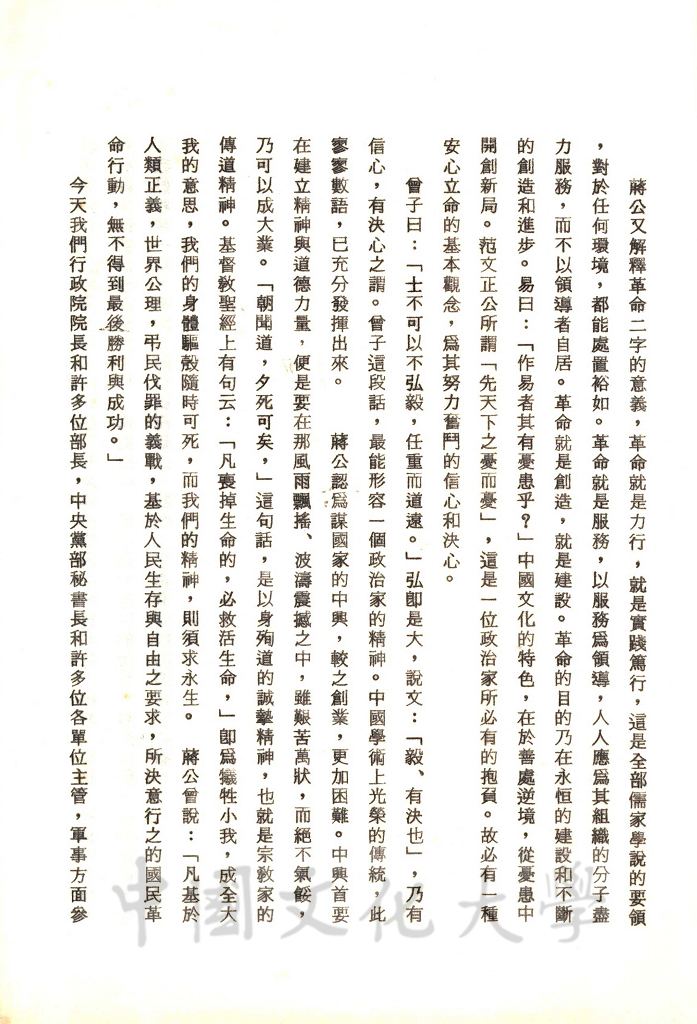 蔣公又解釋革命二字的意義，革命就是力行，就是實踐篤行，這是全部儒家學說的要領
，對於任何環境，都能處置裕如。革命就是服務，以服務爲領導，人人應爲其組織的分子盡
力服務，而不以領導者自居。革命就是創造，就是建設。革命的目的乃在永恒的建設和不斷
的創造和進步。易曰：「作易者其有憂患乎？」中國文化的特色，在於善處逆境，從憂患中
開創新局。范文正公所謂「先天下之憂而憂」，這是一位政治家所必有的抱負。故必有一種
安心立命的基本觀念，爲其努力奮鬥的信心和決心。
曾子曰：「士不可以不弘毅，任重而道遠。」弘卽是大，說文：「毅、有決也」，乃有
信心，有決心之謂。曾子這段話，最能形容一個政治家的精神。中國學術上光榮的傳統，此
寥寥數語，已充分發揮出來。　蔣公認爲謀國家的中興，較之創業，更加困難。中興首要
在建立精神與道德力量，便是要在那風雨飄搖、波濤震撼之中，雖艱苦萬狀，而絕不氣餒，
乃可以成大業。「朝聞道，夕死可矣，」這句話，是以身殉道的誠摯精神，也就是宗教家的
傳道精神。基督教聖經上有句云：「凡喪掉生命的，必救活生命，」卽爲犧牲小我，成全大
我的意思，我們的身體驅殼隨時可死，而我們的精神，則須求永生。　蔣公曾說：「凡基於
人類正義，世界公理，弔民伐罪的義戰，基於人民生存與自由之要求，所決意行之的國民革
命行動，無不得到最後勝利與成功。」
今天我們行政院院長和許多位部長，中央黨部秘書長和許多位各單位主管，軍事方面參
中國文化大學